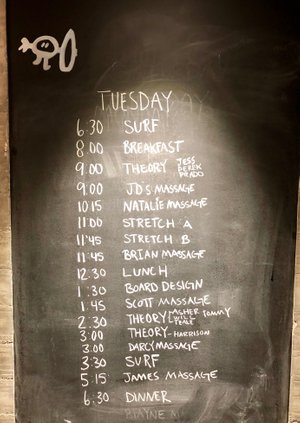 TUESDAY
6:30 SURF
8:00 BREAKFAST
9:00 THEORY JESS DEREK PRADO
9:00 JD'S MASSAGE
10:15 NATALIE MASSAGE
11:00 STRETCH A
11:45 STRETCH B
11:45 BRIAN MASSAGE
12:30 LUNCH
1:30 BOARD DESIGN
1:45 SCOTT MASSAGE
2:30 THEORY ASHER TOMMY WILL
3:00 THEORY - HARRISON
3:00 DARCY MASSAGE
3:30 SURF
5:15 JAMES MASSAGE
6:30 DINNER